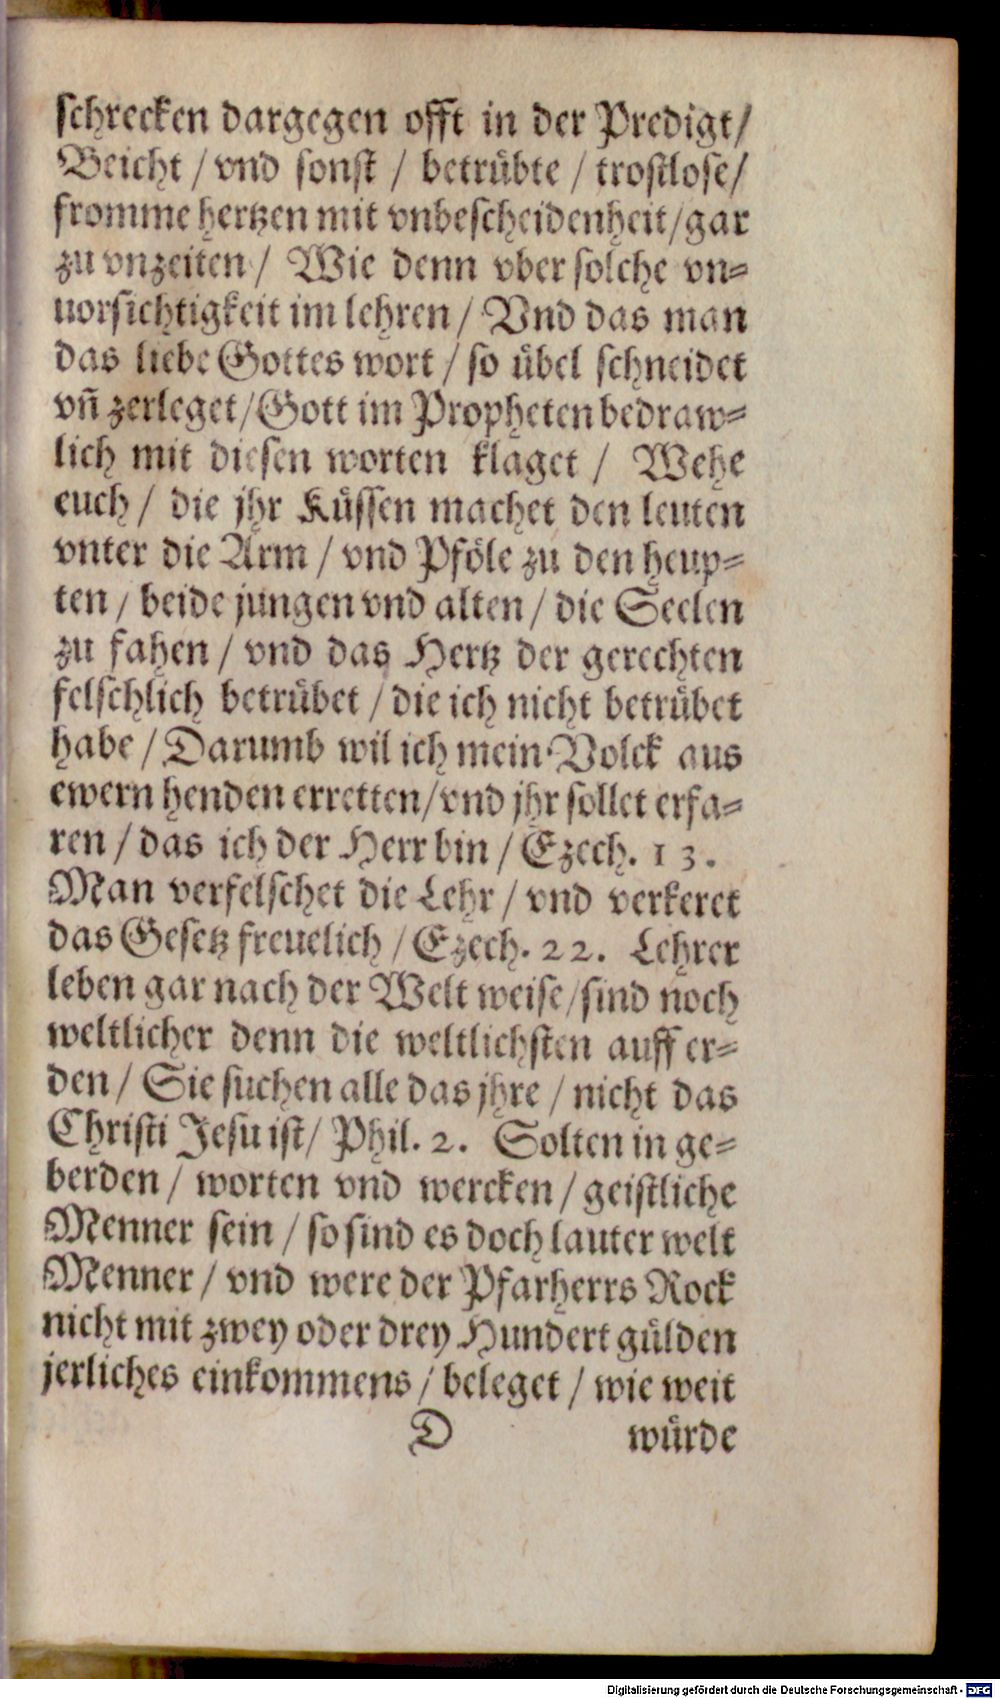 schrecken dargegen offt in der Predigt/
Beicht / vnd sonst / betrübte / trostlose/
fromme hertzen mit vnbescheidenheit/gar
zu vnzeiten / Wie denn vber solche vn=
uorsichtigkeit im lehren / Vnd das man
das liebe Gottes wort / so übel schneidet
vñ zerleget/Gott im Propheten bedraw=
lich mit diesen worten klaget / Wehe
euch / die jhr Küssen machet den leuten
vnter die Arm / vnd Pföle zu den heup=
ten / beide jungen vnd alten / die Seelen
zu fahen / vnd das Hertz der gerechten
felschlich betrübet / die ich nicht betrübet
habe / Darumb wil ich mein Volck aus
ewern henden erretten/vnd jhr sollet erfa=
ren / das ich der Herr bin / Ezech. 13.
Man verfelschet die Lehr / vnd verkeret
das Gesetz freuelich / Ezech. 22. Lehrer
leben gar nach der Welt weise/sind noch
weltlicher denn die weltlichsten auff er=
den / Sie suchen alle das jhre / nicht das
Christi Jesu ist/ Phil. 2. Solten in ge=
berden / worten vnd wercken / geistliche
Menner sein / so sind es doch lauter welt
Menner / vnd were der Pfarherrs Rock
nicht mit zwey oder drey Hundert gülden
jerliches einkommens / beleget / wie weit
D würde
Digitalisierung gefördert durch die Deutsche Forschungsgemeinschaft - DFG